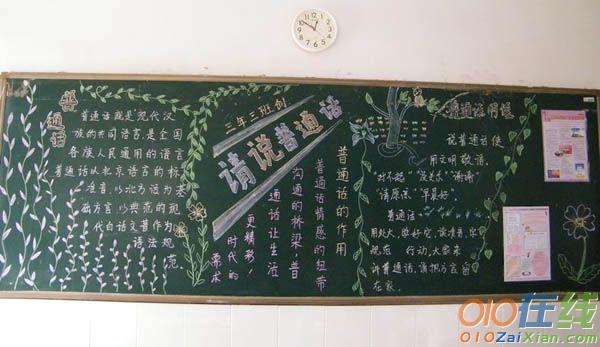 普通话
普通话就是现代汉
族的共同语言,是全国
各族人民通用的语言
普通话以北京语言的标
准音,以北方话为基
础方言,以典范的现
代白话文著作为
语法规
范
三年三班创
请说普通话
普通话的作用
普通话情感的纽带
沟通的桥梁普
通话让生活
更精彩!
时代的
要求
说普通话使
用文明敬语。
"对不起" "没关系" "谢谢"
"请原谅" "早晨好"。
普通法
规范 行动,大家来
讲普通话,请把方言留
在家。
010在线
010ZaiXian.com